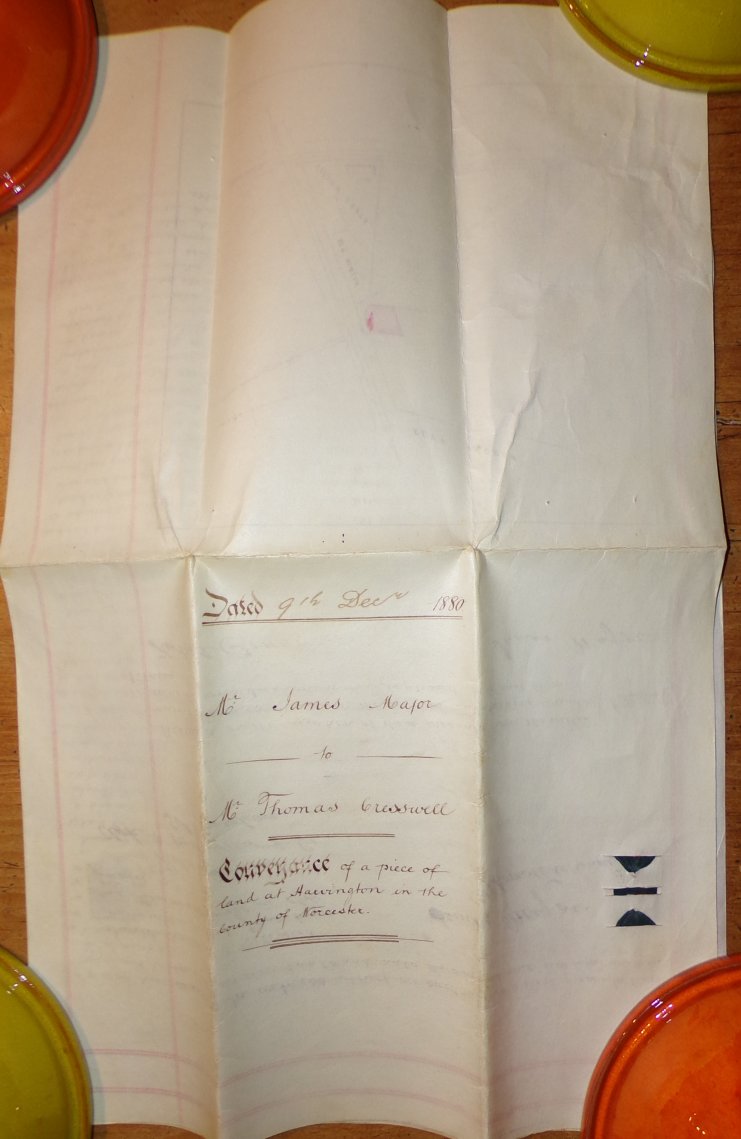 Dated 9th Decr 1880
Mr James Major
to
Mr Thomas Cresswell
Conveyance of a piece of
land at Harvington in the
County of Worcester.